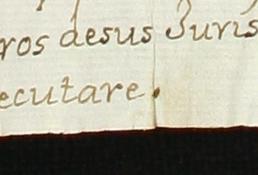 ros desus Juris
ecutare.